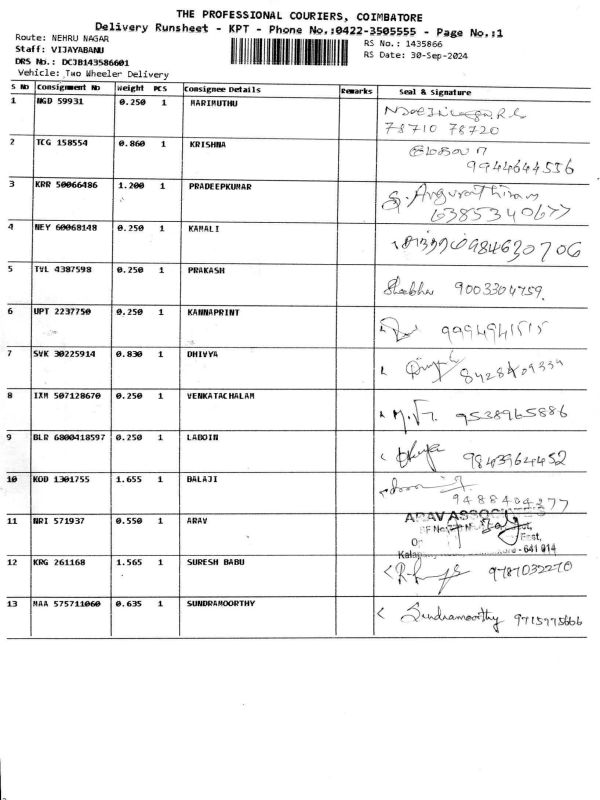 THE PROFESSIONAL COURIERS, COIMBATORE
Delivery Runsheet - KPT - Phone No.:0422-3505555 - Page No.:1
Route: NEHRU NAGAR
RS No.: 1435866
Staff: VIJAYABANU
RS Date: 30-Sep-2024
DRS No.: DCJB143586601
Vehicle: Two Wheeler Delivery
S No Consignment No Weight PCS Consignee Details Remarks Seal & signature
1 NGD 59931 0.250 1 MARIMUTHU
78710 78720
2 TCG 158554 0.860 1 KRISHNA
9944644556
3 KRR 50066486 1.200 1 PRADEEPKUMAR
6385340677
4 NEY 60068148 0.250 1 KAMALI 9984630706
5 TVL 4387598 0.250 1 PRAKASH
Shobha 9003304759.
6 UPT 2237750 0.250 1 KANNAPRINT
7 SVK 30225914 0.830 1 DHIVYA
8428409334
8 IXM 507128670 0.250 1 VENKATACHALAM
9538965886
9 BLR 6800418597 0.250 1 LABOIN
9843964452
10 KOD 1301755 1.655 1 BALAJI
9488404277
11 NRI 571937 0.550 1 ARAV
ARAV ASSOCIATES
- 641 014
12 KRG 261168 1.565 1 SURESH BABU
9787032270
13 MAA 575711060 0.635 1 SUNDRAMOORTHY
Sundramoorthy 9715775666